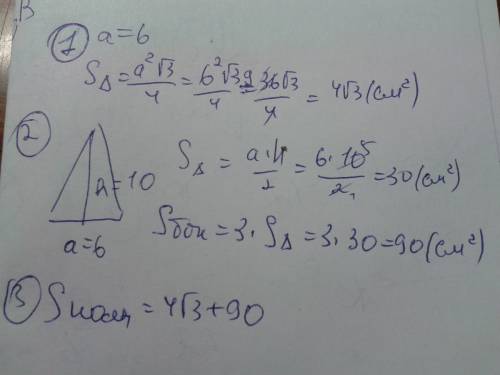 B
1 a=6
S△ = a²√3/4 = 6²√3/4 = 9 36√3/4 = 4√3 (см²)
2
h=10
a=6
S△ = a·h/2 = 6·10⁵/2₁ = 30 (см²)
Sбок = 3·S△ = 3·30 = 90 (см²)
3 Sполн = 4√3+90